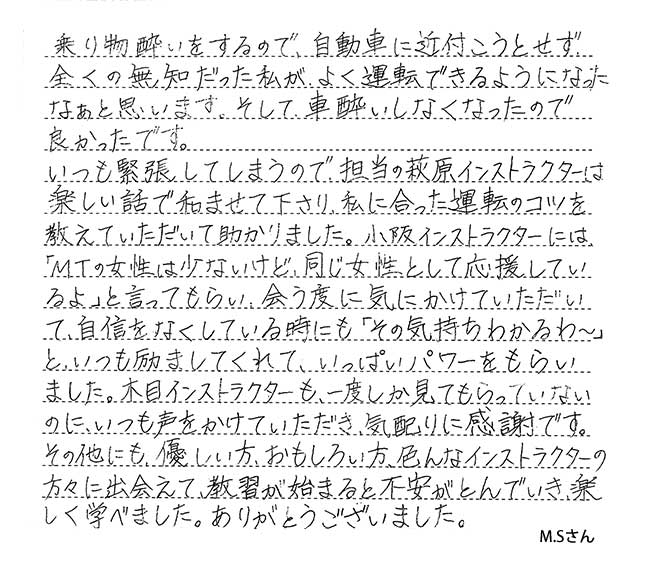 乗り物酔いをするので、自動車に近付こうとせず
全くの無知だった私が、よく運転できるようになった
なぁと思います。そして、車酔いしなくなったので
良かったです。
いつも緊張してしまうので、担当の萩原インストラクターは
楽しい話で和ませて下さり、私に合った運転のコツを
教えていただいて助かりました。小阪インストラクターには、
「MTの女性は少ないけど、同じ女性として応援してい
るよ」と言ってもらい、会う度に気にかけていただい
て、自信をなくしている時にも「その気持ちわかるわ〜」
と、いつも励ましてくれて、いっぱいパワーをもらい
ました。木目インストラクターも、一度しか見てもらっていない
のに、いつも声をかけていただき、気配りに感謝です。
その他にも、優しい方、おもしろい方、色んなインストラクターの
方々に出会えて、教習が始まると不安がとんでいき、楽
しく学べました。ありがとうございました。
M.Sさん